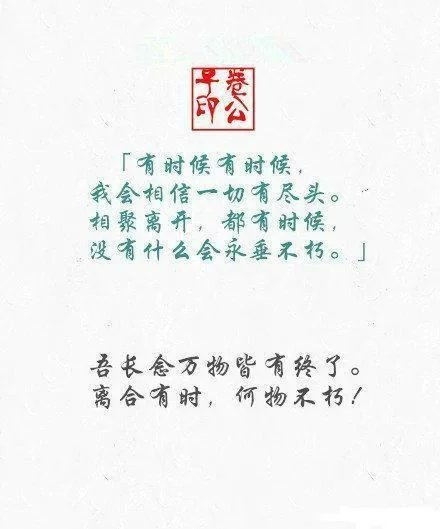 卷公早印
「有时候有时候，
我会相信一切有尽头。
相聚离开，都有时候，
没有什么会永垂不朽。」
吾长念万物皆有终了。
离合有时，何物不朽！